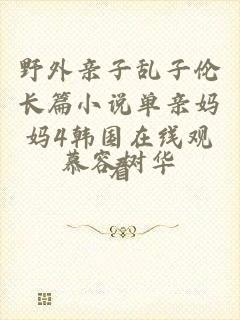 野外亲子乱子伦
长篇小说单亲妈
妈4韩国在线观
看
慕容树华